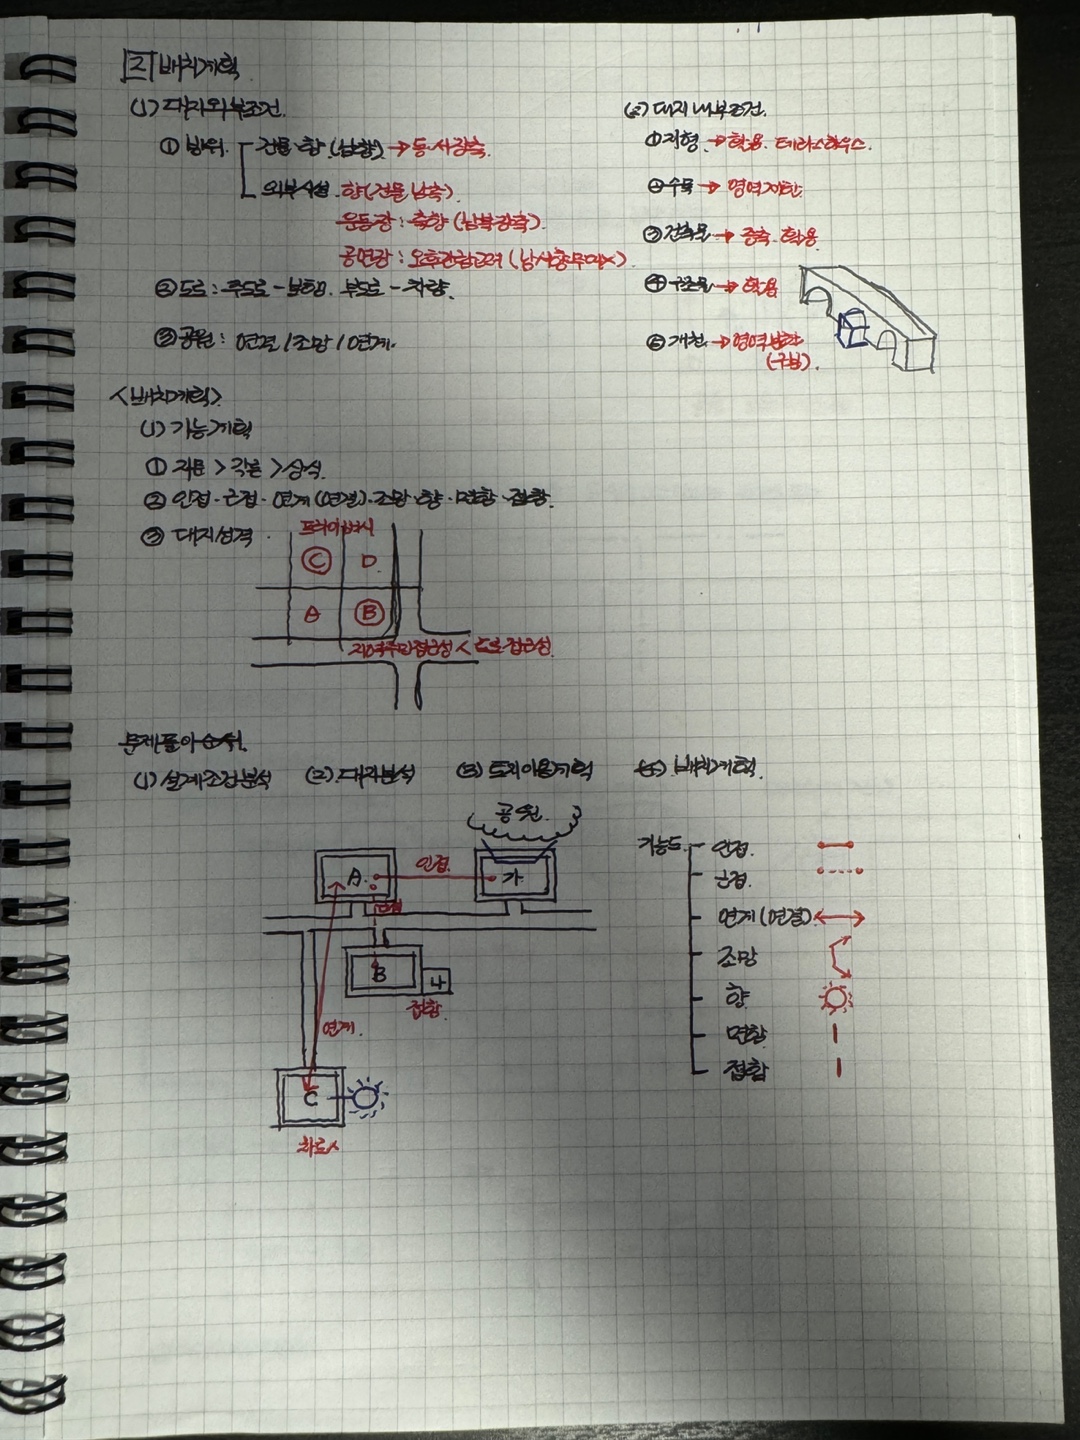 [2] 배치계획
(1) 대지외부조건.
① 방위. 건물·향 (남향) → 동·서장축.
외부시설. 향(건물 남측).
운동장 : 축향 (남북장축).
공연장 : 오후관람고려 (남서향무대x)
② 도로 : 주도로 - 보행. 부도로 - 차량.
③ 공원 : 연결 / 조망 / 연계.
(2) 대지 내부조건.
① 지형. → 활용. 테라스하우스.
② 수목 → 영역제한
③ 건축물 → 증축. 활용.
④ 구조물 → 활용
⑤ 개천. → 영역분할
(구분).
<배치계획>
(1) 기능계획
① 지문 > 각론 > 상식.
② 인접·근접·연계(연결)·조망·향·면함·접함.
③ 대지성격.
프라이버시
C D.
A B
지역주민접근성 < 도로 접근성.
문제풀이 순서.
(1) 설계조건분석 (2) 대지분석 (3) 토지이용계획 (4) 배치계획.
공원.
A. 인접. 가.
근접
B 나
접함.
연계.
C
기능도.
인접.
근접.
연계(연결)
조망
향.
면함
접함